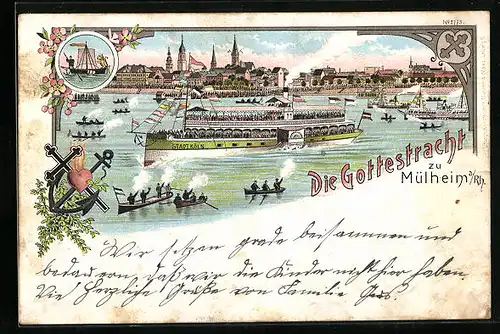 No 5773.
STADT KÖLN
Die Gottestracht
zu
Mülheim a/Rh.
Wir sitzen grade beisammen und
bedauern, daß wir die Kinder nicht hier haben.
Viel herzliche Grüße von Familie